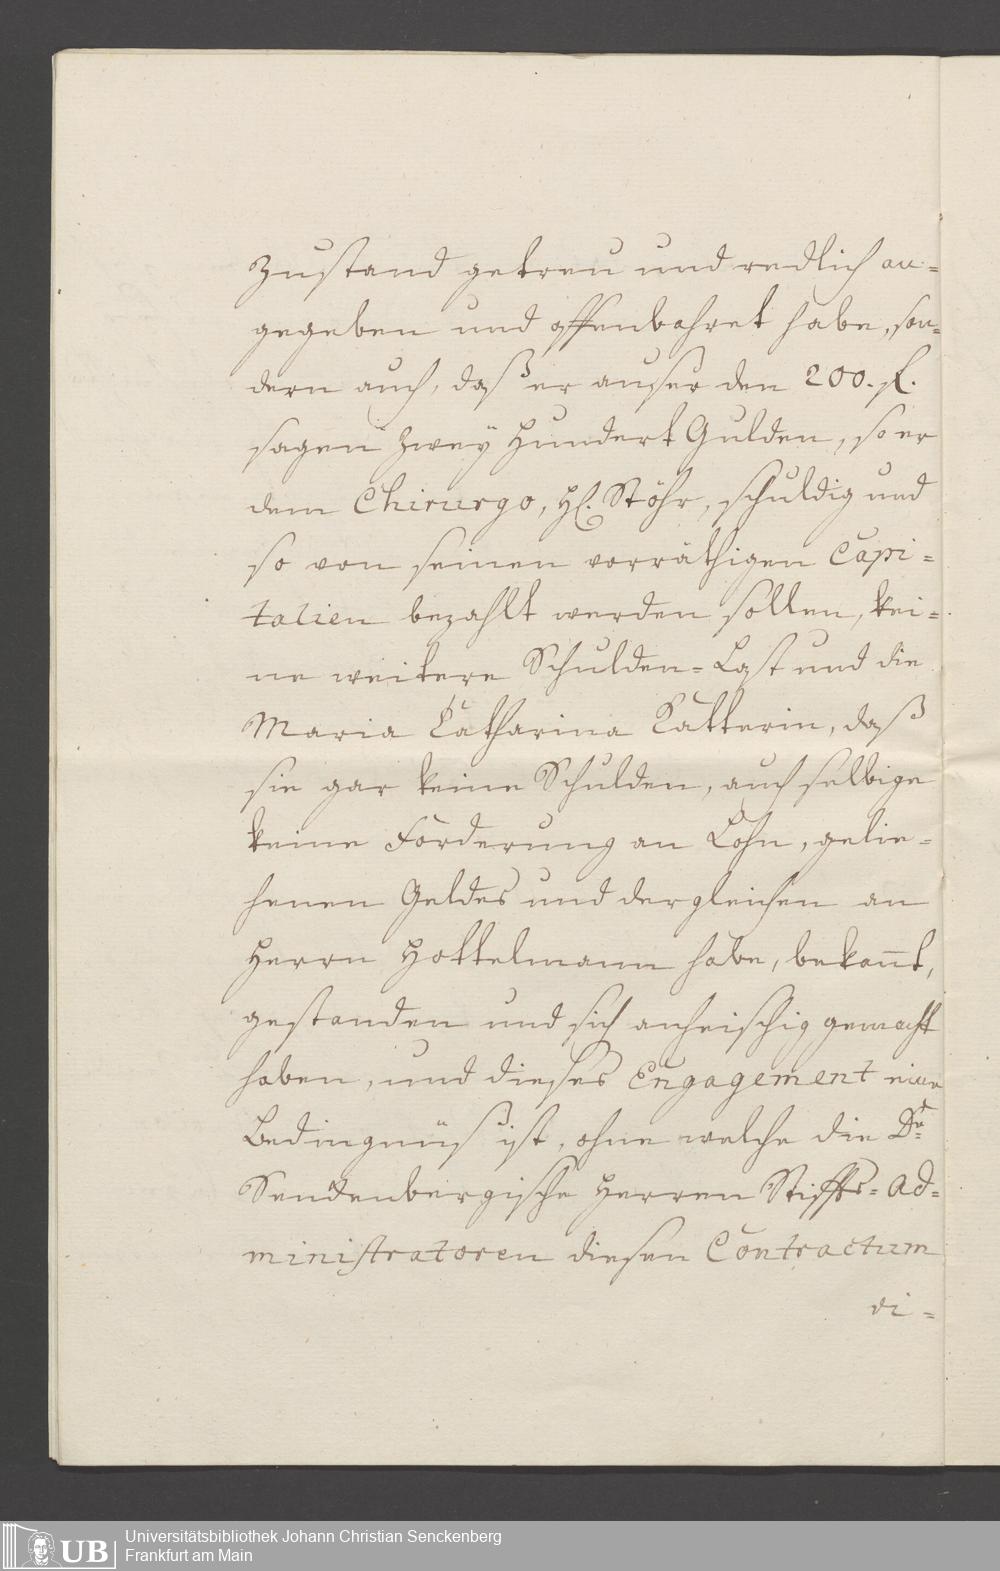 Zustand getreu und redlich an-
gegeben und offenbahret habe, son-
dern auch, daß er auser den 200. fl.
sagen Zwey Hundert Gulden, so er
dem Chirurgo, H. Stöhr, schuldig und
so von seinen vorräthigen Capi-
talien bezahlt werden sollen, kei-
ne weitere Schulden-Last und die
Maria Catharina Katterin, daß
sie gar keine Schulden, auch selbige
keine Forderung an Lohn, gelie-
henen Geldes und dergleichen an
Herrn Hottelmann habe, bekannt,
gestanden und sich anheischig gemacht
haben, und dieses Engagement eine
Bedingnüs ist, ohne welche die Dr
Senckenbergische Herren Stiffts-Ad-
ministratoren diesen Contractum
ei-
UB
Universitätsbibliothek Johann Christian Senckenberg
Frankfurt am Main